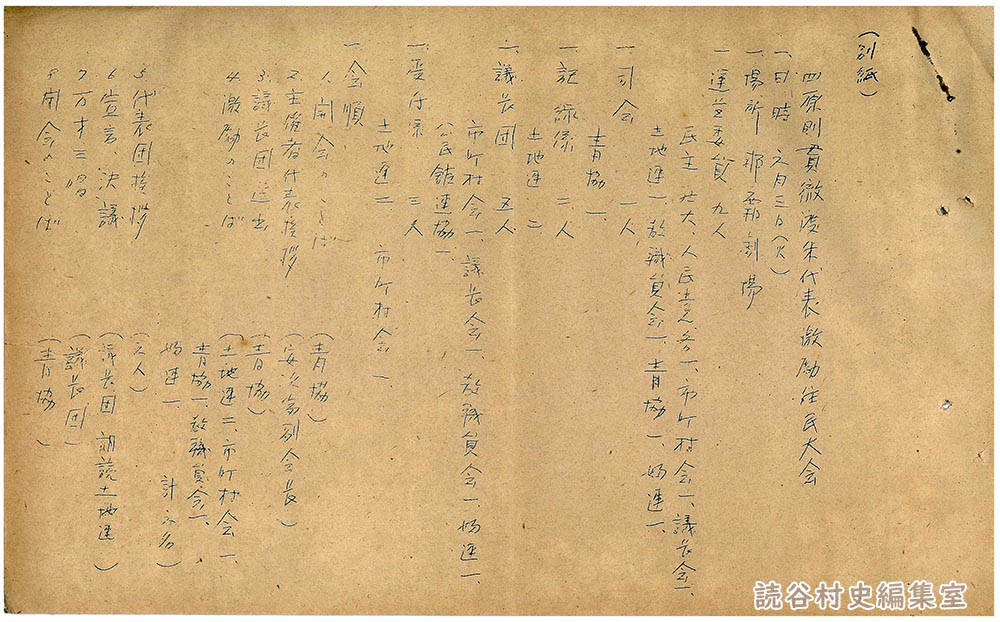 (別紙)
四原則貫徹渡米代表激励住民大会
一、日時 六月三日(火)
一、場所 那覇劇場
一、運営委員 九人
民主 社大、人民 各一、市町村会一、議長会一、
土地連一、教職員会一、青協一、婦連一、
一、司会 一人
青協 一
一、記録係 二人
土地連 二
一、議長団 五人
市町村会一、議長会一、教職員会一、婦連一、
公民館連協一、
一、受付係 三人
土地連二 市町村会一、
一、会順
1、開会のことば (青協)
2、主催者代表挨拶 (安次富副会長)
3、議長団選出 (青協)
4、激励のことば (土地連二、市町村会一、
青協一、教職員会一、
婦連一 計六名)
5、代表団挨拶 (六人)
6、宣言、決議 (議長団 朗読土地連)
7、万才三唱 (議長団)
8、閉会のことば (青協)
読谷村史編集室